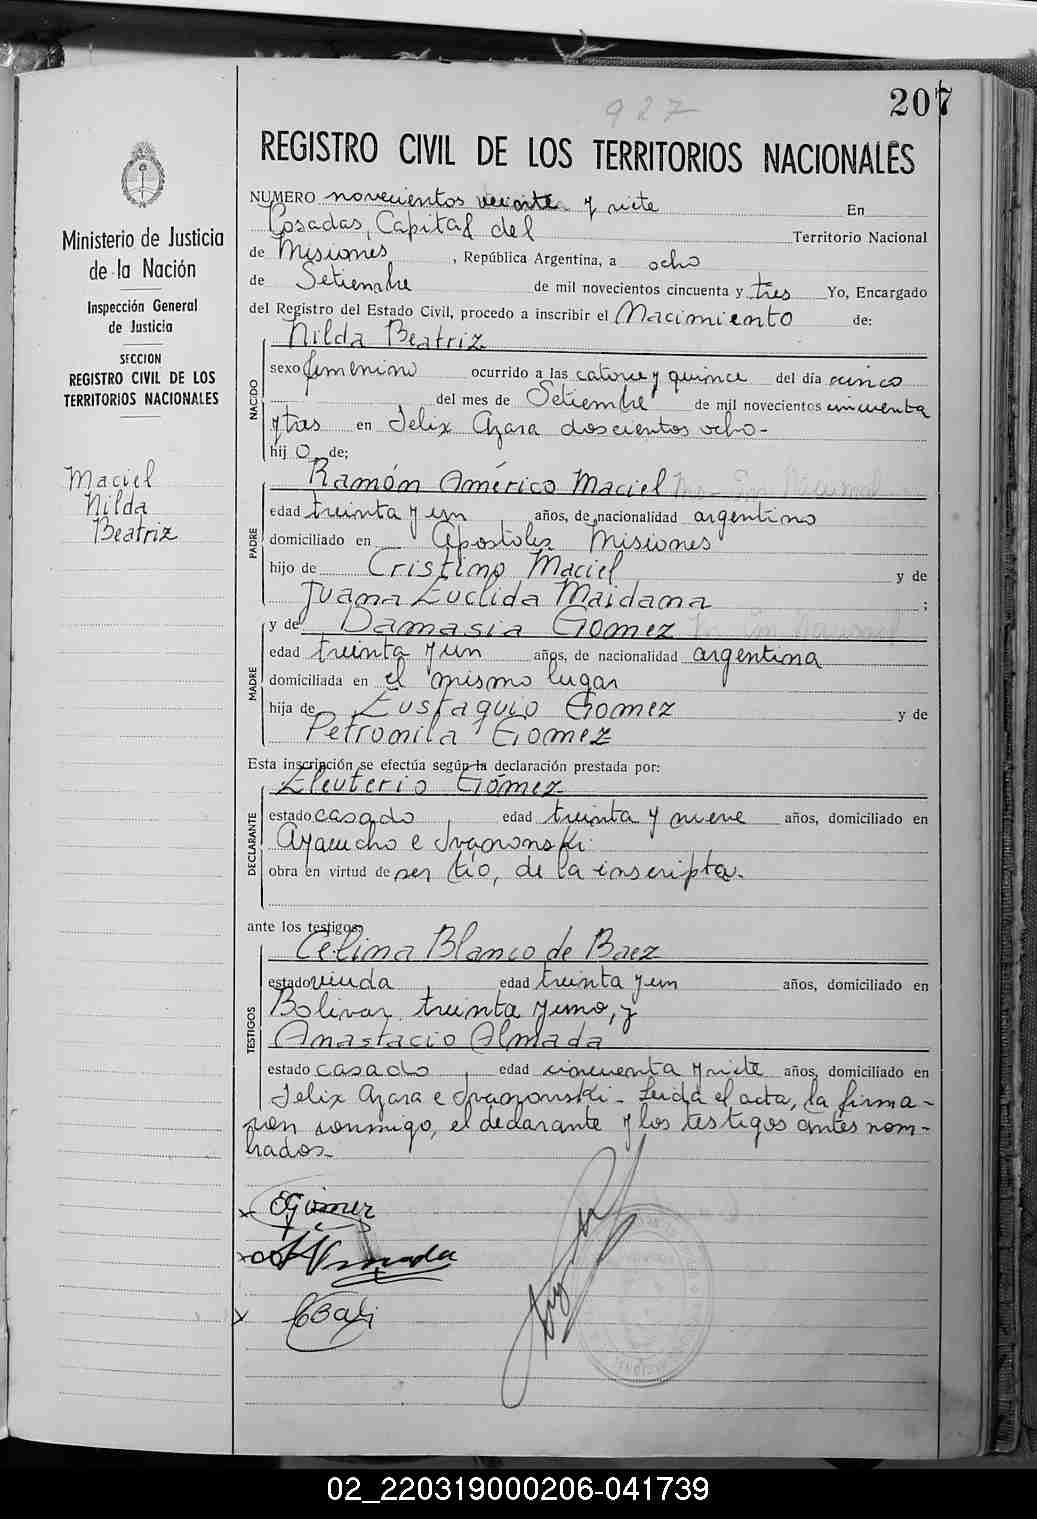 927
207
REGISTRO CIVIL DE LOS TERRITORIOS NACIONALES
Ministerio de Justicia
de la Nación
Inspección General
de Justicia
SECCION
REGISTRO CIVIL DE LOS
TERRITORIOS NACIONALES
Maciel
Nilda
Beatriz
NUMERO novecientos veinte y siete En
Posadas, Capital del Territorio Nacional
de Misiones, República Argentina, a ocho
de Setiembre de mil novecientos cincuenta y tres Yo, Encargado
del Registro del Estado Civil, procedo a inscribir el Nacimiento de:
Nilda Beatriz
NACIDO
sexo femenino ocurrido a las catorce y quince del día cinco
del mes de Setiembre de mil novecientos cincuenta
y tres en Felix Azara doscientos ocho-
hij a de;
PADRE
Ramón Américo Maciel
edad treinta y un años, de nacionalidad argentino
domiciliado en Apostoles Misiones
hijo de Cristino Maciel y de
Juana Euclida Maidana ;
MADRE
y de Damasia Gomez
edad treinta y un años, de nacionalidad argentina
domiciliada en el mismo lugar
hija de Eustaquio Gomez y de
Petronila Gomez
Esta inscripción se efectúa según la declaración prestada por:
DECLARANTE
Eleuterio Gómez
estado casado, edad treinta y nueve años, domiciliado en
Ayacucho e
obra en virtud de ser tío, de la inscripta.
ante los testigos;
TESTIGOS
Celina Blanco de Baez
estado viuda, edad treinta y un años, domiciliado en
Bolivar treinta y uno, y
Anastacio Almada
estado casado, edad cincuenta y siete años, domiciliado en
Felix Azara e - Leida el acta, la firma-
ron conmigo, el declarante y los testigos antes nom-
brados-
x EGómez
02_220319000206-041739